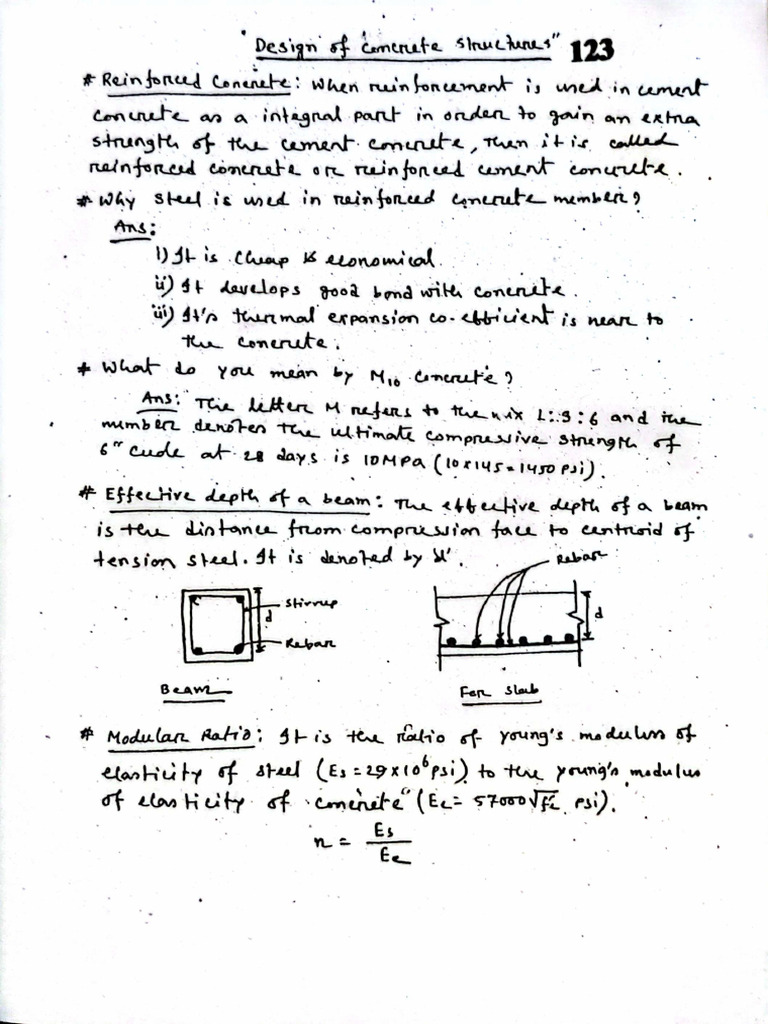 "Design of Concrete Structures" 123
* Reinforced Concrete: When reinforcement is used in cement
concrete as a integral part in order to gain an extra
strength of the cement concrete, then it is called
reinforced concrete or reinforced cement concrete.
* Why steel is used in reinforced concrete member?
Ans:
i) It is cheap & economical.
ii) It develops good bond with concrete.
iii) It's thermal expansion co-efficient is near to
the concrete.
* What do you mean by M10 concrete?
Ans: The letter M refers to the mix 1:3:6 and the
number denotes the ultimate compressive strength of
6" cude at 28 days is 10MPa (10x145=1450 psi).
# Effective depth of a beam: The effective depth of a beam
is the distance from compression face to centroid of
tension steel. It is denoted by 'd'.
Rebar
Stirrup
d
d
Rebar
Beam
For slab
* Modular Ratio: It is the ratio of young's modulus of
elasticity of steel (Es = 29x10⁶ psi) to the young's modulus
of elasticity of "concrete" (Ec = 57000√fc psi).
n = Es
Ec